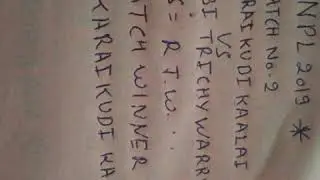 NPL 2019 *
ATCH NO. 2
RAIKUDI KAALAI
VS
BI TRICHY WARR
S = R T.W...
ATCH WINNER
KARAIKUDI KA